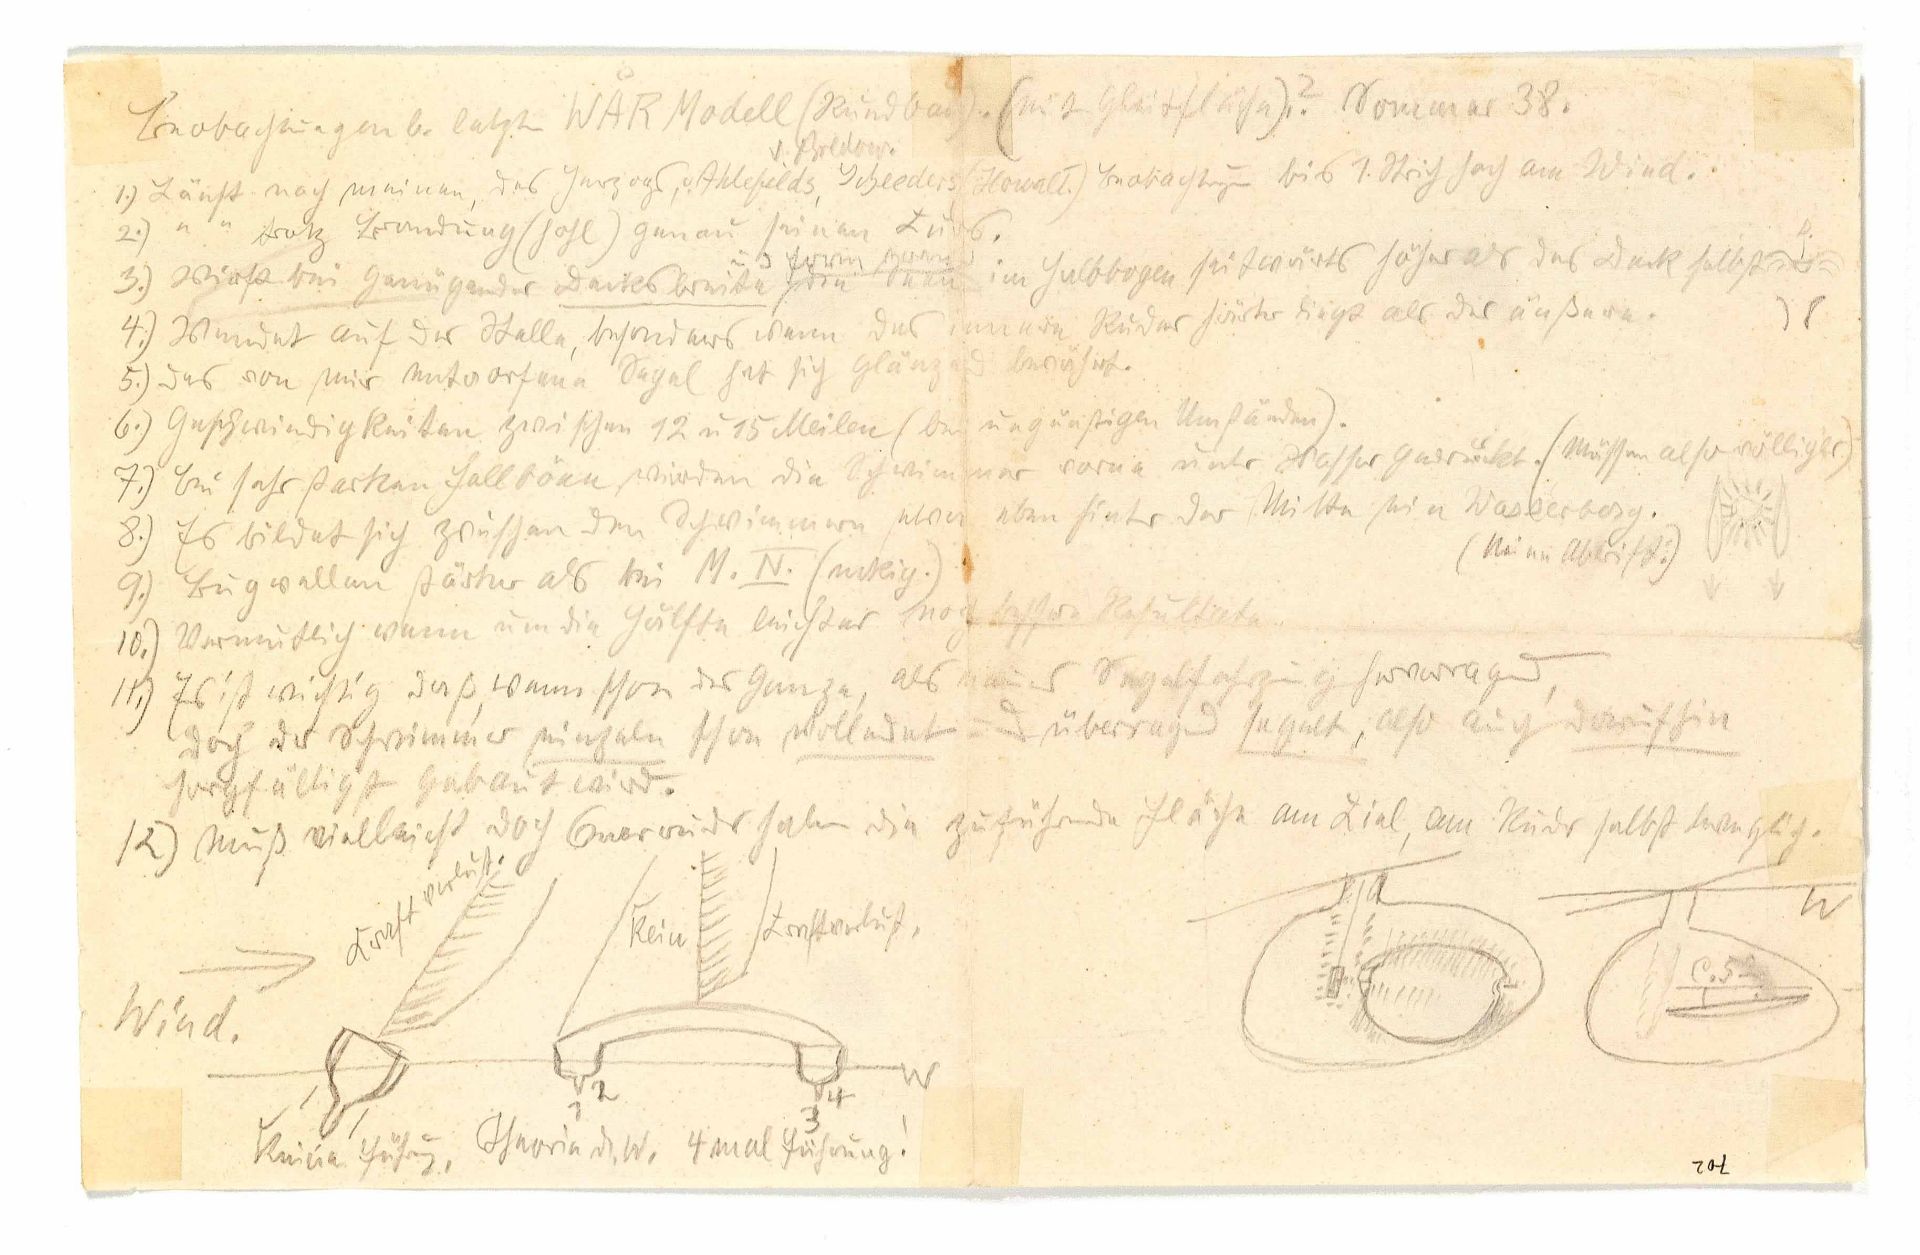 Beobachtungen b. letzten WÅR Modell (Rundbau). (mit Gleitfläche)? Sommer 38.
v. Bredow.
1.) Läuft nach meinen, des Herzogs, v. Ahlefelds, Scheeders (Howalt.) Beobachtungen bis 1. Strich hoch am Wind.
2.) " " trotz Brandung (hohl) genau seinen Kurs.
3.) Wirft bei genügender Decksbreite die Seen im Halbbogen seitwärts höher als das Deck selbst
4.) Wendet auf der Stelle, besonders wenn das innere Ruder härter liegt als das äußere.
5.) Das von mir entworfene Segel hat sich glänzend bewährt.
6.) Geschwindigkeiten zwischen 12 u 15 Meilen (bei ungünstigen Umständen).
7.) Bei sehr starken Fallböen wurden die Schwimmer vorne unter Wasser gedrückt. (Müssen also völliger)
8.) Es bildet sich zwischen den Schwimmern etwa eben hinter der Mitte ein Wasserberg.
(Keine Abtrift.)
9.) Bugwellen stärker als bei M. IV. (eckig.)
10.) Vermutlich wenn um die Hälfte leichter noch bessere Resultate
11.) Es ist wichtig daß, wenn schon das Ganze, als neues Segelfahrzeug hervorragend,
doch der Schwimmer einzeln schon vollendet und überragend segelt, also auch daraufhin
sorgfältigst gebaut wird.
12.) Muß vielleicht doch Querruder haben die zuführende Fläche am Kiel, am Ruder selbst beweglich.
Kraftverlust.
Kein Kraftverlust.
Wind.
W
W
1 2
3 4
Keine Führung. Theorie d. W. 4 mal Führung!
702